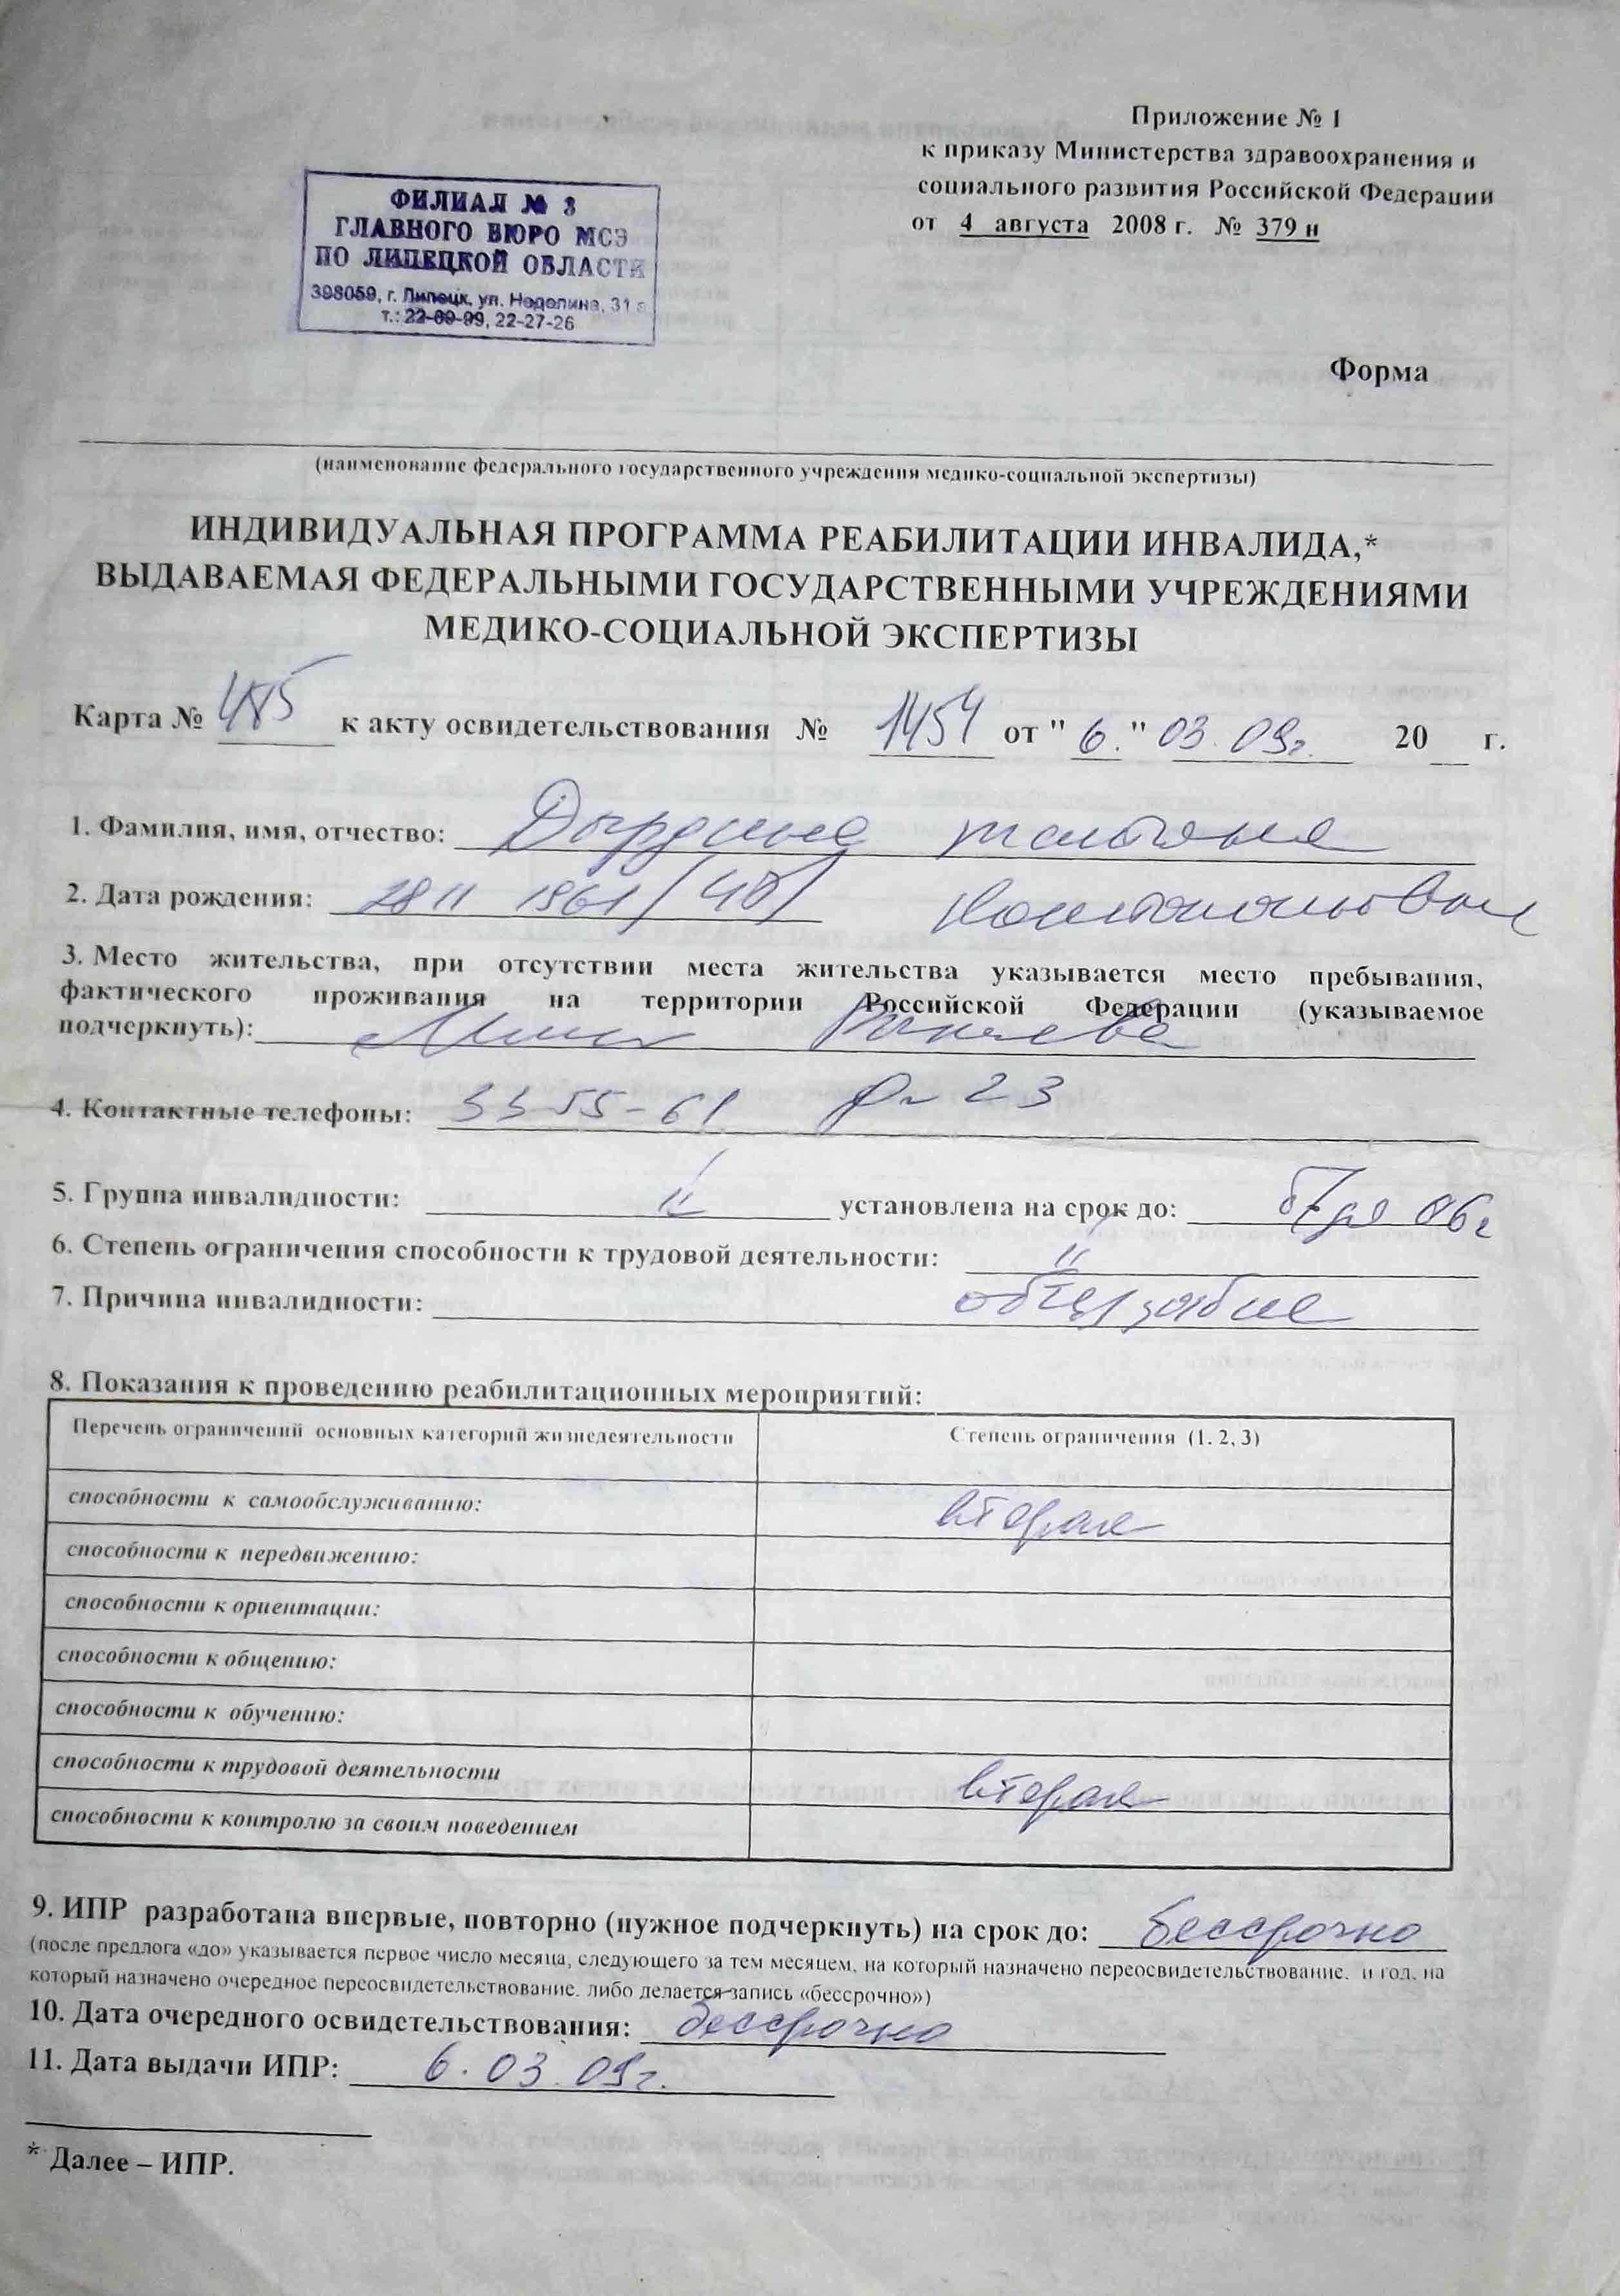 Приложение № 1
к приказу Министерства здравоохранения и
социального развития Российской Федерации
от 4 августа 2008 г. № 379 н
ФИЛИАЛ № 3
ГЛАВНОГО БЮРО МСЭ
ПО ЛИПЕЦКОЙ ОБЛАСТИ
398059, г. Липецк, ул. Неделина, 31 а
т.: 22-09-99, 22-27-26
Форма
(наименование федерального государственного учреждения медико-социальной экспертизы)
ИНДИВИДУАЛЬНАЯ ПРОГРАММА РЕАБИЛИТАЦИИ ИНВАЛИДА,*
ВЫДАВАЕМАЯ ФЕДЕРАЛЬНЫМИ ГОСУДАРСТВЕННЫМИ УЧРЕЖДЕНИЯМИ
МЕДИКО-СОЦИАЛЬНОЙ ЭКСПЕРТИЗЫ
Карта № к акту освидетельствования № 1454 от "6." 03.09г. 20 г.
1. Фамилия, имя, отчество: Татьяна
2. Дата рождения: 28 11 1961
3. Место жительства, при отсутствии места жительства указывается место пребывания,
фактического проживания на территории Российской Федерации (указываемое
подчеркнуть):
4. Контактные телефоны: 33 55-61 23
5. Группа инвалидности: II установлена на срок до:
6. Степень ограничения способности к трудовой деятельности: II
7. Причина инвалидности:
8. Показания к проведению реабилитационных мероприятий:
Перечень ограничений основных категорий жизнедеятельности Степень ограничения (1. 2, 3)
способности к самообслуживанию: вторая
способности к передвижению:
способности к ориентации:
способности к общению:
способности к обучению:
способности к трудовой деятельности вторая
способности к контролю за своим поведением
9. ИПР разработана впервые, повторно (нужное подчеркнуть) на срок до: бессрочно
(после предлога «до» указывается первое число месяца, следующего за тем месяцем, на который назначено переосвидетельствование, и год, на
который назначено очередное переосвидетельствование, либо делается запись «бессрочно»)
10. Дата очередного освидетельствования: бессрочно
11. Дата выдачи ИПР: 6.03.09г.
* Далее – ИПР.